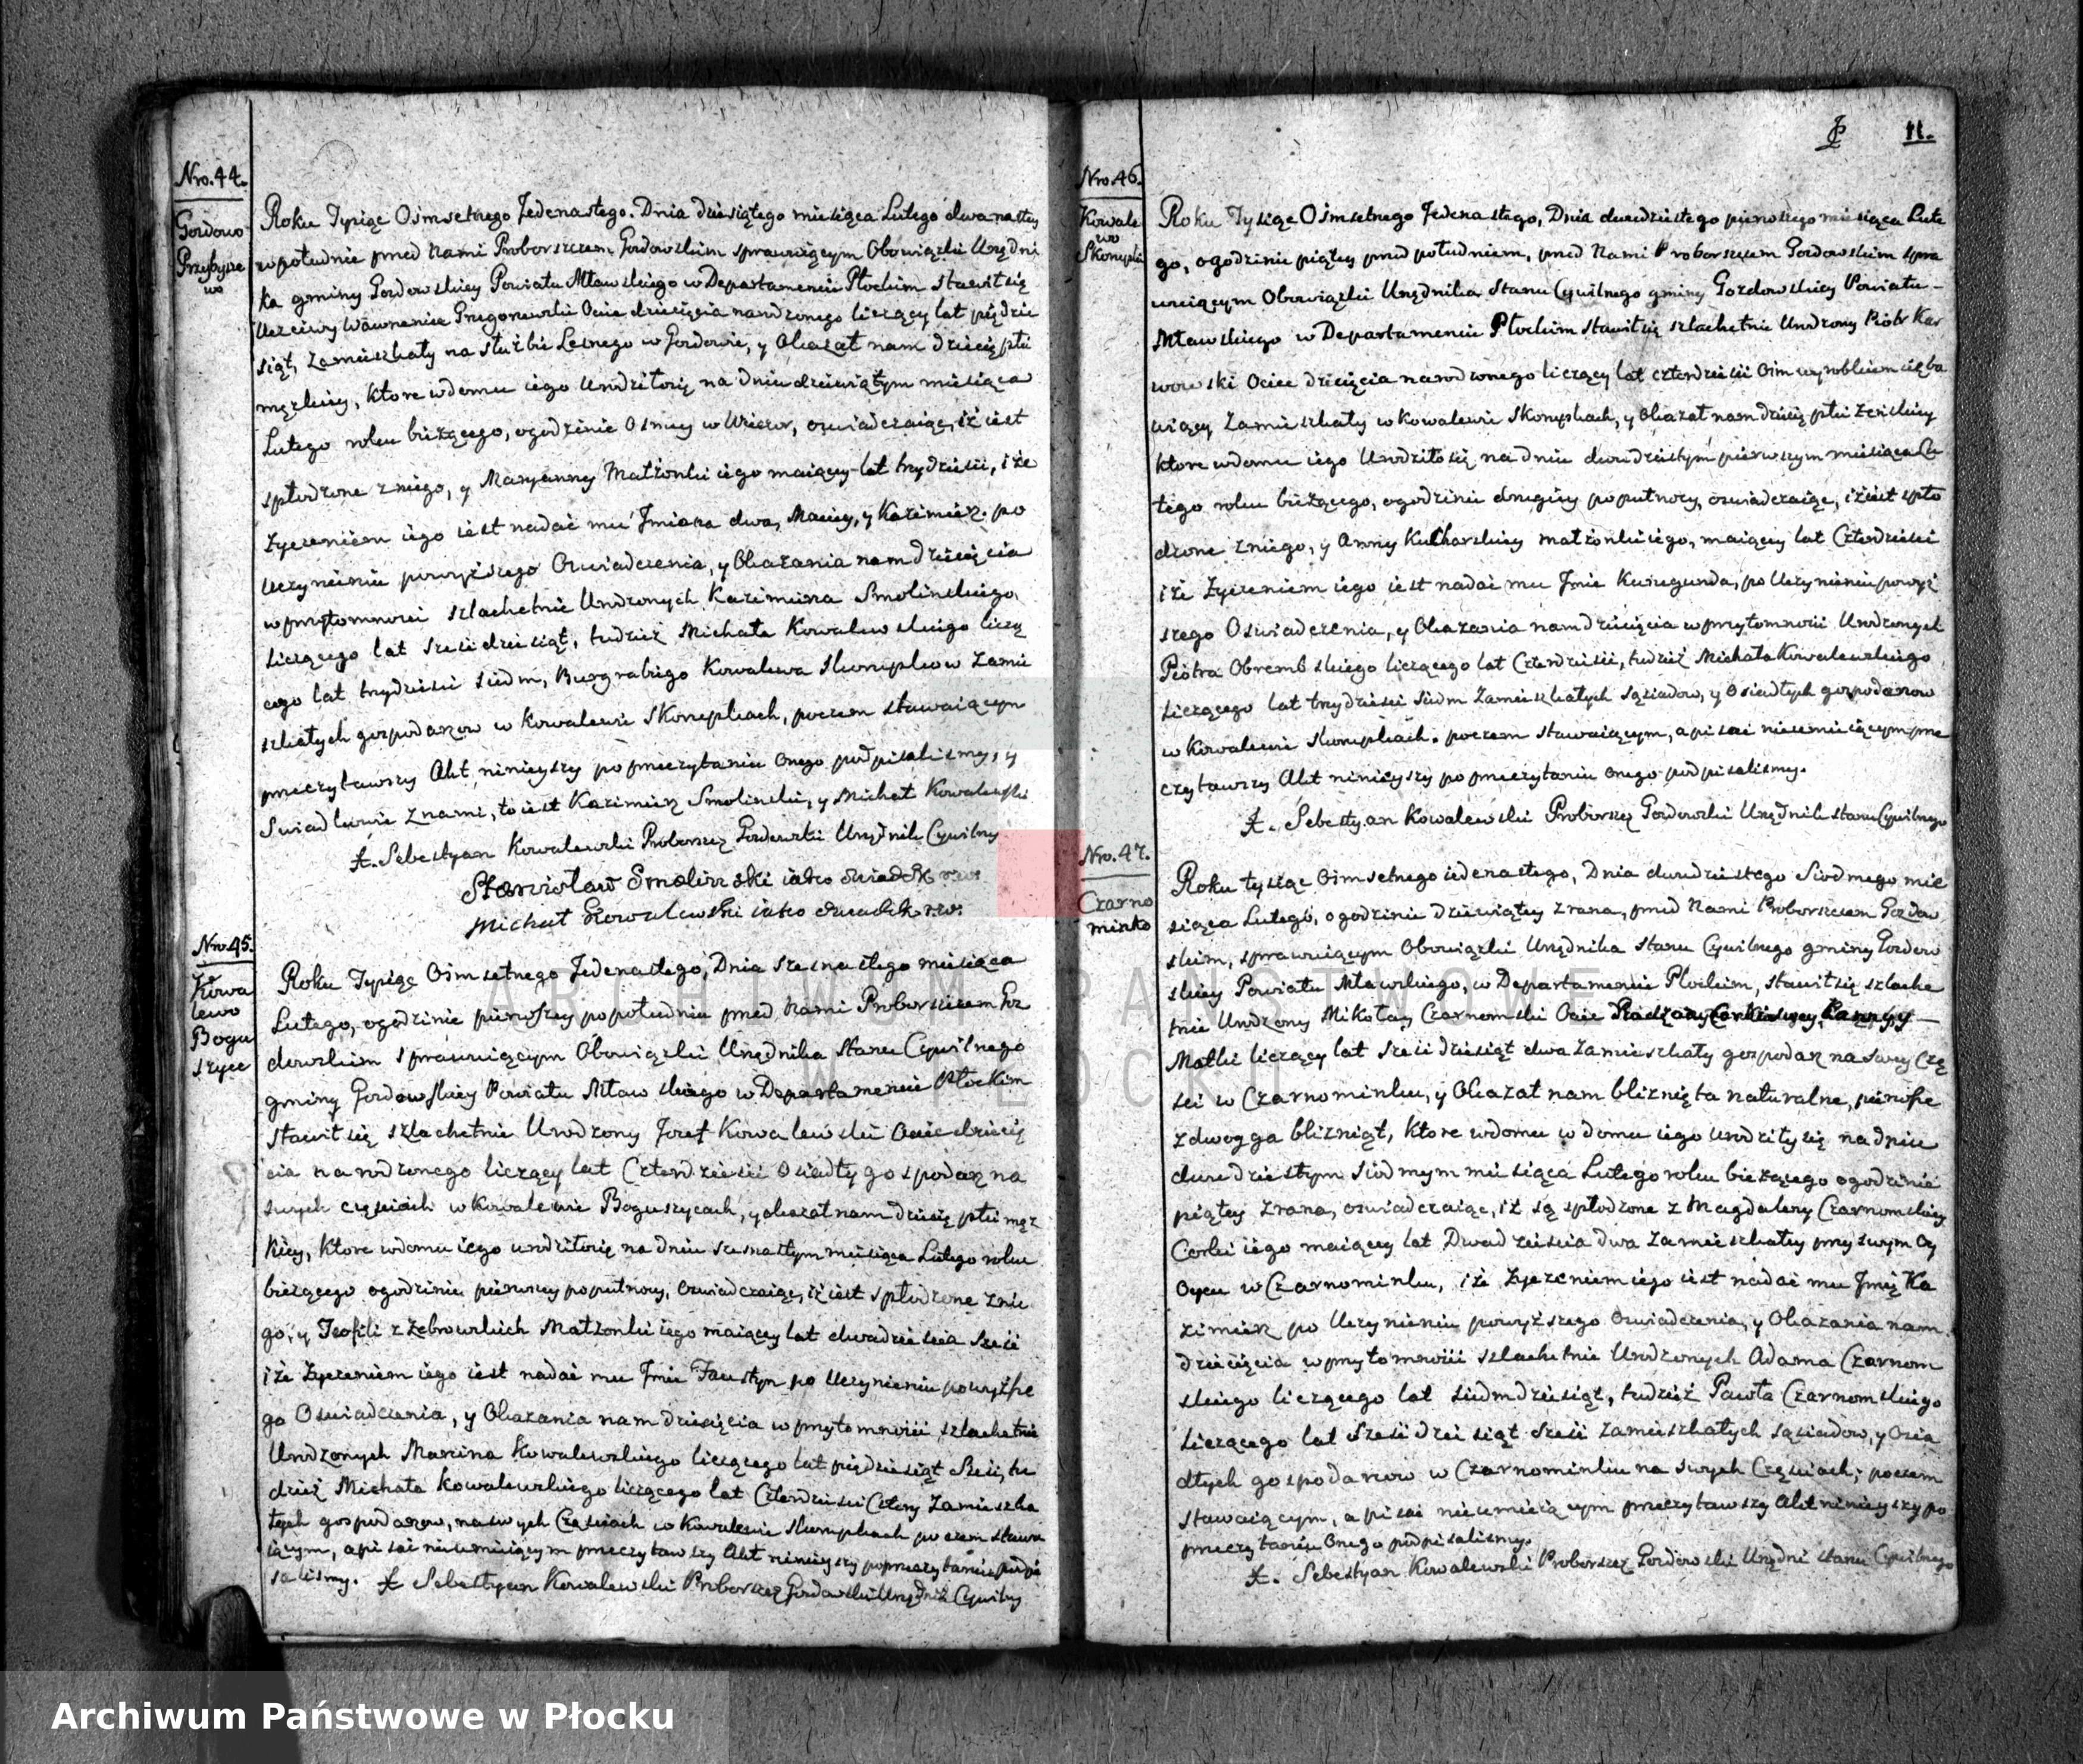 Nro. 44.
Gozdowo
Przybysze
wo
Roku Tysiąc Osmsetnego Jedenastego. Dnia dziesiątego miesiąca Lutego dwunastey
w południe przed Nami Proboszczem Gozdowskim sprawuiącym Obowiązki Urzędni
ka gminy Gozdowskiey Powiatu Mławskiego w Departamencie Płockim stawił się
Uczciwy Wawrzeniec Ociec dziecięcia narodzonego liczący lat pięćdzie
siąt, zamieszkały na służbie w Gozdowie, y Okazał nam dziecię płci
męzkiey, ktore w domu iego Urodziło się na dniu dziewiątym miesiąca
Lutego roku bieżącego, o godzinie Osmey w Wieczor, oswiadczaiąc, iż iest
spłodzone z niego, y Maryanny Małżonki iego maiącey lat trzydzieści, i że
życzeniem iego iest nadać mu Jmiona dwa, Maciey, y Kazimierz. po
Uczynieniu powyższego Oswiadczenia, y Okazania nam dziecięcia
w przytomności szlachetnie Urodzonych Kazimierza Smolinskiego
liczącego lat sześćdziesiąt, tudzież Michała Kowalewskiego liczą
cego lat trzydzieści siedm, Burgrabiego Kowalewa Skorupkow zamie
szkałych gospodarzow w Kowalewie Skorupkach, poczem stawaiącym
przeczytawszy Akt ninieyszy po przeczytaniu onego podpisalismy, y
Swiadkowie z nami, to iest Kazimierz Smolinski, y Michał Kowalewski
X. Sebastyan Kowalewski Proboszcz Gozdowski Urzędnik Cywilny
Stanisław Smolinski iako swiadek
Michał Kowalewski iako swiadek
Nro. 45.
Kowa
lewo
Bogu
szyce
Roku Tysiąc Osmsetnego Jedenastego, Dnia szesnastego miesiąca
Lutego, o godzinie pierwszey po południu przed Nami Proboszczem Goz
dowskim sprawuiącym Obowiązki Urzędnika Stanu Cywilnego
gminy Gozdowskiey Powiatu Mławskiego w Departamencie Płockim
stawił się szlachetnie Urodzony Jozef Kowalewski Ociec dziecię
cia narodzonego liczący lat Czterdzieści Osiadły gospodarz na
swych częściach w Kowalewie Boguszycach, y okazał nam dziecię płci męz
kiey, ktore w domu iego urodziło się na dniu szesnastym miesiąca Lutego roku
bieżącego o godzinie pierwszey po pułnocy, oswiadczaiąc, iż iest spłodzone z nie
go, y Teofili z Żebrowskich Małżonki iego maiącey lat dwadzieścia sześć
i że życzeniem iego iest nadać mu Jmie Faustyn po Uczynieniu powyższe
go Oswiadczenia, y Okazania nam dziecięcia w przytomności szlachetnie
Urodzonych Marcina Kowalewskiego liczącego lat pięćdziesiąt sześć, tu
dzież Michała Kowalewskiego liczącego lat Czterdzieści Cztery zamieszka
łych gospodarzow, na swych Częściach w Kowalewie Skorupkach poczem stawa
iącym, a pisać nieumieiącym przeczytawszy Akt ninieyszy po przeczytaniu podpi
salismy. X Sebestyan Kowalewski Proboszcz Gozdowski Urzędnik Cywilny
II.
Nro. 46.
Kowale
wo
Skorupki
Roku Tysiąc Osmsetnego Jedenastego, Dnia dwudziestego pierwszego miesiąca Lute
go, o godzinie piątey przed południem, przed Nami Proboszczem Gozdowskim spra
wuiącym Obowiązki Urzędnika Stanu Cywilnego gminy Gozdowskiey Powiatu
Mławskiego w Departamencie Płockim stawił się szlachetnie Urodzony Piotr Kar
wowski Ociec dziecięcia narodzonego liczący lat czterdzieści osm wyrobkiem się ba
wiący zamieszkały w Kowalewie Skorupkach, y Okazał nam dziecię płci żeńskiey
ktore w domu iego Urodziło się na dniu dwudziestym pierwszym miesiąca Lu
tego roku bieżącego, o godzinie drugiey po pułnocy, oswiadczaiąc, iż iest spło
dzone z niego, y Anny Kucharskiey małżonki iego, maiącey lat Czterdzieści
i że życzeniem iego iest nadać mu Jmie Kunegunda, po Uczynieniu powyż
szego Oswiadczenia, y Okazania nam dziecięcia w przytomności Urodzonych
Piotra Obrembskiego liczącego lat Czterdzieści, tudzież Michała Kowalewskiego
liczącego lat trzydzieści siedm zamieszkałych sąsiadow, y Osiadłych gospodarzow
w Kowalewie Skorupkach. poczem stawaiącym, a pisać nieumieiącym prze
czytawszy Akt ninieyszy po przeczytaniu onego podpisalismy.
X. Sebestyan Kowalewski Proboszcz Gozdowski Urzędnik Stanu Cywilnego
Nro. 47.
Czarno
minko
Roku tysiąc Osmsetnego iedenastego, Dnia dwudziestego Siodmego mie
siąca Lutego, o godzinie dziewiątey z rana, przed Nami Proboszczem Gozdow
skim, sprawuiącym Obowiązki Urzędnika Stanu Cywilnego gminy Gozdow
skiey Powiatu Mławskiego, w Departamencie Płockim, stawił się szlache
tnie Urodzony Mikołay Czarnomski Ociec
Matki liczący lat sześćdziesiąt dwa zamieszkały gospodarz na swey Czę
ści w Czarnominku, y Okazał nam bliznięta naturalne, pierwsze
z dwoyga blizniąt, ktore w domu w domu iego urodziły się na dniu
dwudziestym siodmym miesiąca Lutego roku bieżącego o godzinie
piątey z rana, oswiadczaiąc, iż są spłodzone z Magdaleny Czarnomskiey
Corki iego maiącey lat Dwadzieścia dwa zamieszkałey przy swym Oy
Oycu w Czarnominku, i że życzeniem iego iest nadać mu Jmię Ka
zimierz po Uczynieniu powyższego Oswiadczenia, y Okazania nam
dziecięcia w przytomności szlachetnie Urodzonych Adama Czarnom
skiego liczącego lat siedmdziesiąt, tudzież Pawła Czarnomskiego
liczącego lat sześćdziesiąt sześć zamieszkałych sąsiadow, y Osia
dłych gospodarzow w Czarnominku na swych Częściach; poczem
stawaiącym, a pisać nieumieiącym przeczytawszy Akt ninieyszy po
przeczytaniu Onego podpisalismy.
X. Sebestyan Kowalewski Proboszcz Gozdowski Urzędni Stanu Cywilnego
ARCHIWUM PAŃSTWOWE
W PŁOCKU
Archiwum Państwowe w Płocku